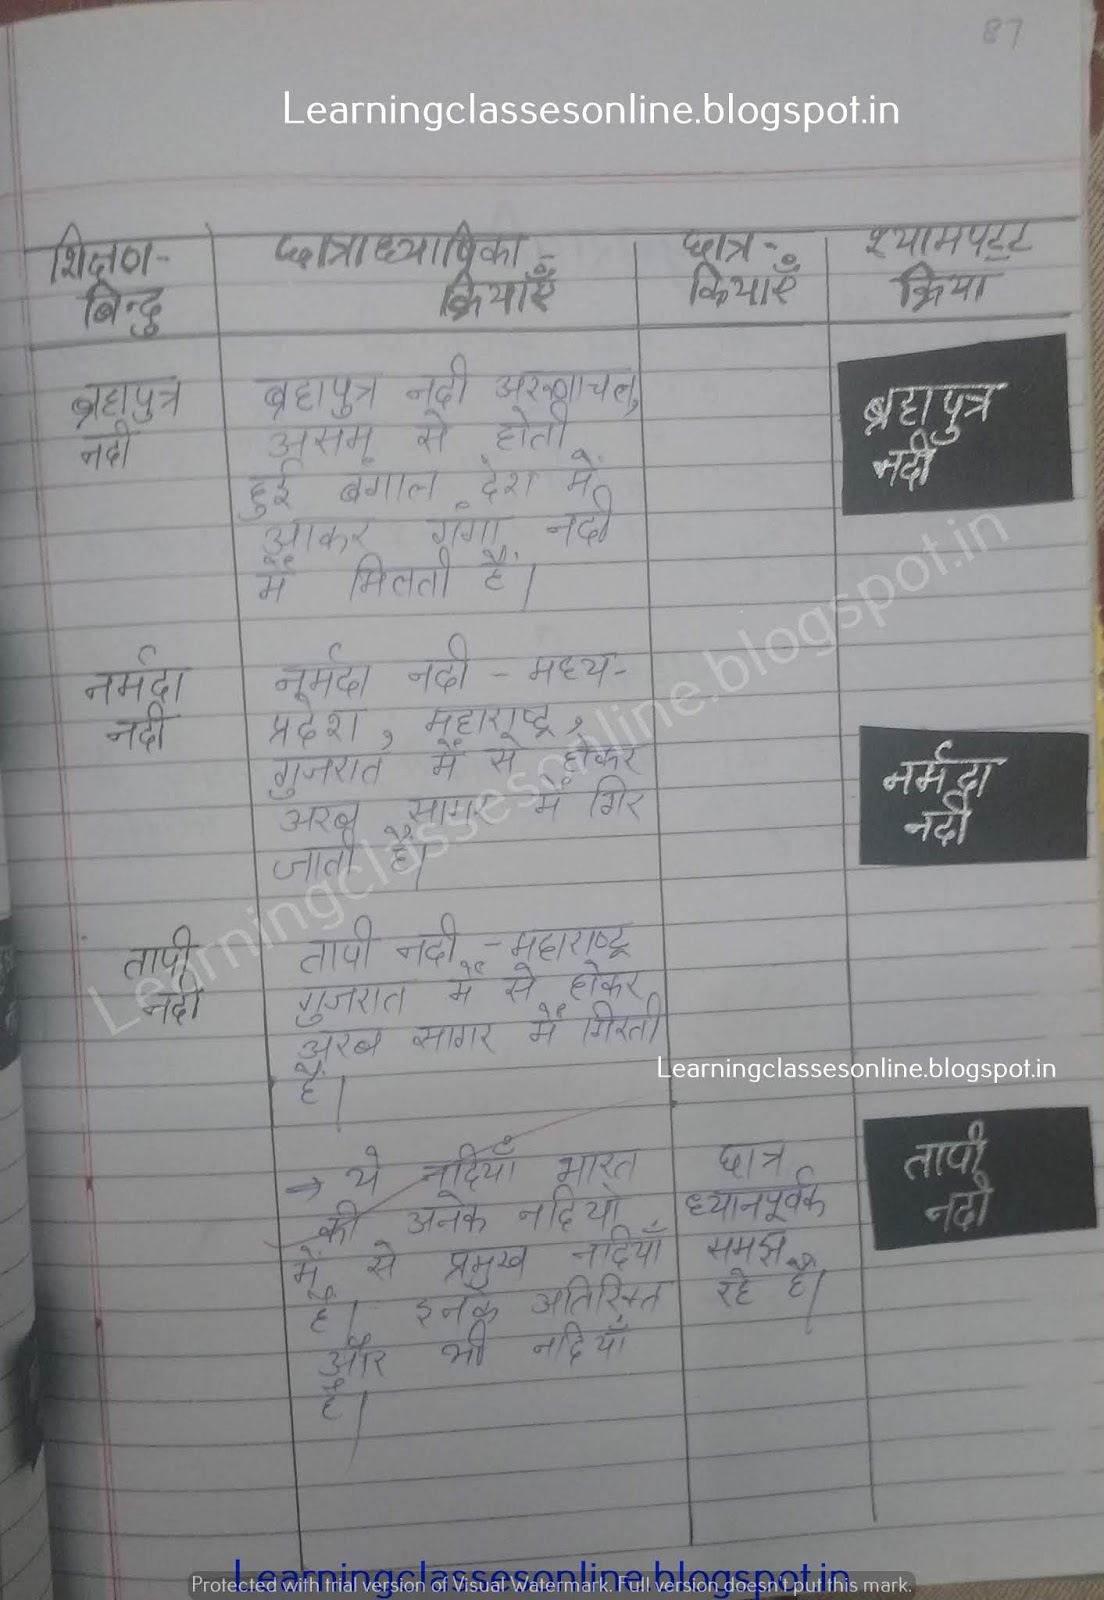 87
Learningclassesonline.blogspot.in
शिक्षण-
बिन्दु
छात्राध्यापिका-
क्रियाएँ
छात्र-
क्रियाएँ
श्यामपट्ट
क्रिया
ब्रह्मपुत्र
नदी
ब्रह्मपुत्र नदी अरुणाचल,
असम से होती
हुई बंगाल देश में
आकर गंगा नदी
में मिलती है।
ब्रह्मपुत्र
नदी
नर्मदा
नदी
नर्मदा नदी - मध्य-
प्रदेश, महाराष्ट्र,
गुजरात में से होकर
अरब सागर में गिर
जाती है।
नर्मदा
नदी
तापी
नदी
तापी नदी - महाराष्ट्र
गुजरात में से होकर
अरब सागर में गिरती
है।
Learningclassesonline.blogspot.in
Learningclassesonline.blogspot.in
→ ये नदियाँ भारत
की अनेक नदियो
में से प्रमुख नदियाँ
है। इनके अतिरिक्त
और भी नदियाँ
है।
छात्र
ध्यानपूर्वक
समझ
रहे है।
तापी
नदी
Learningclassesonline.blogspot.in
Protected with trial version of Visual Watermark. Full version doesn't put this mark.